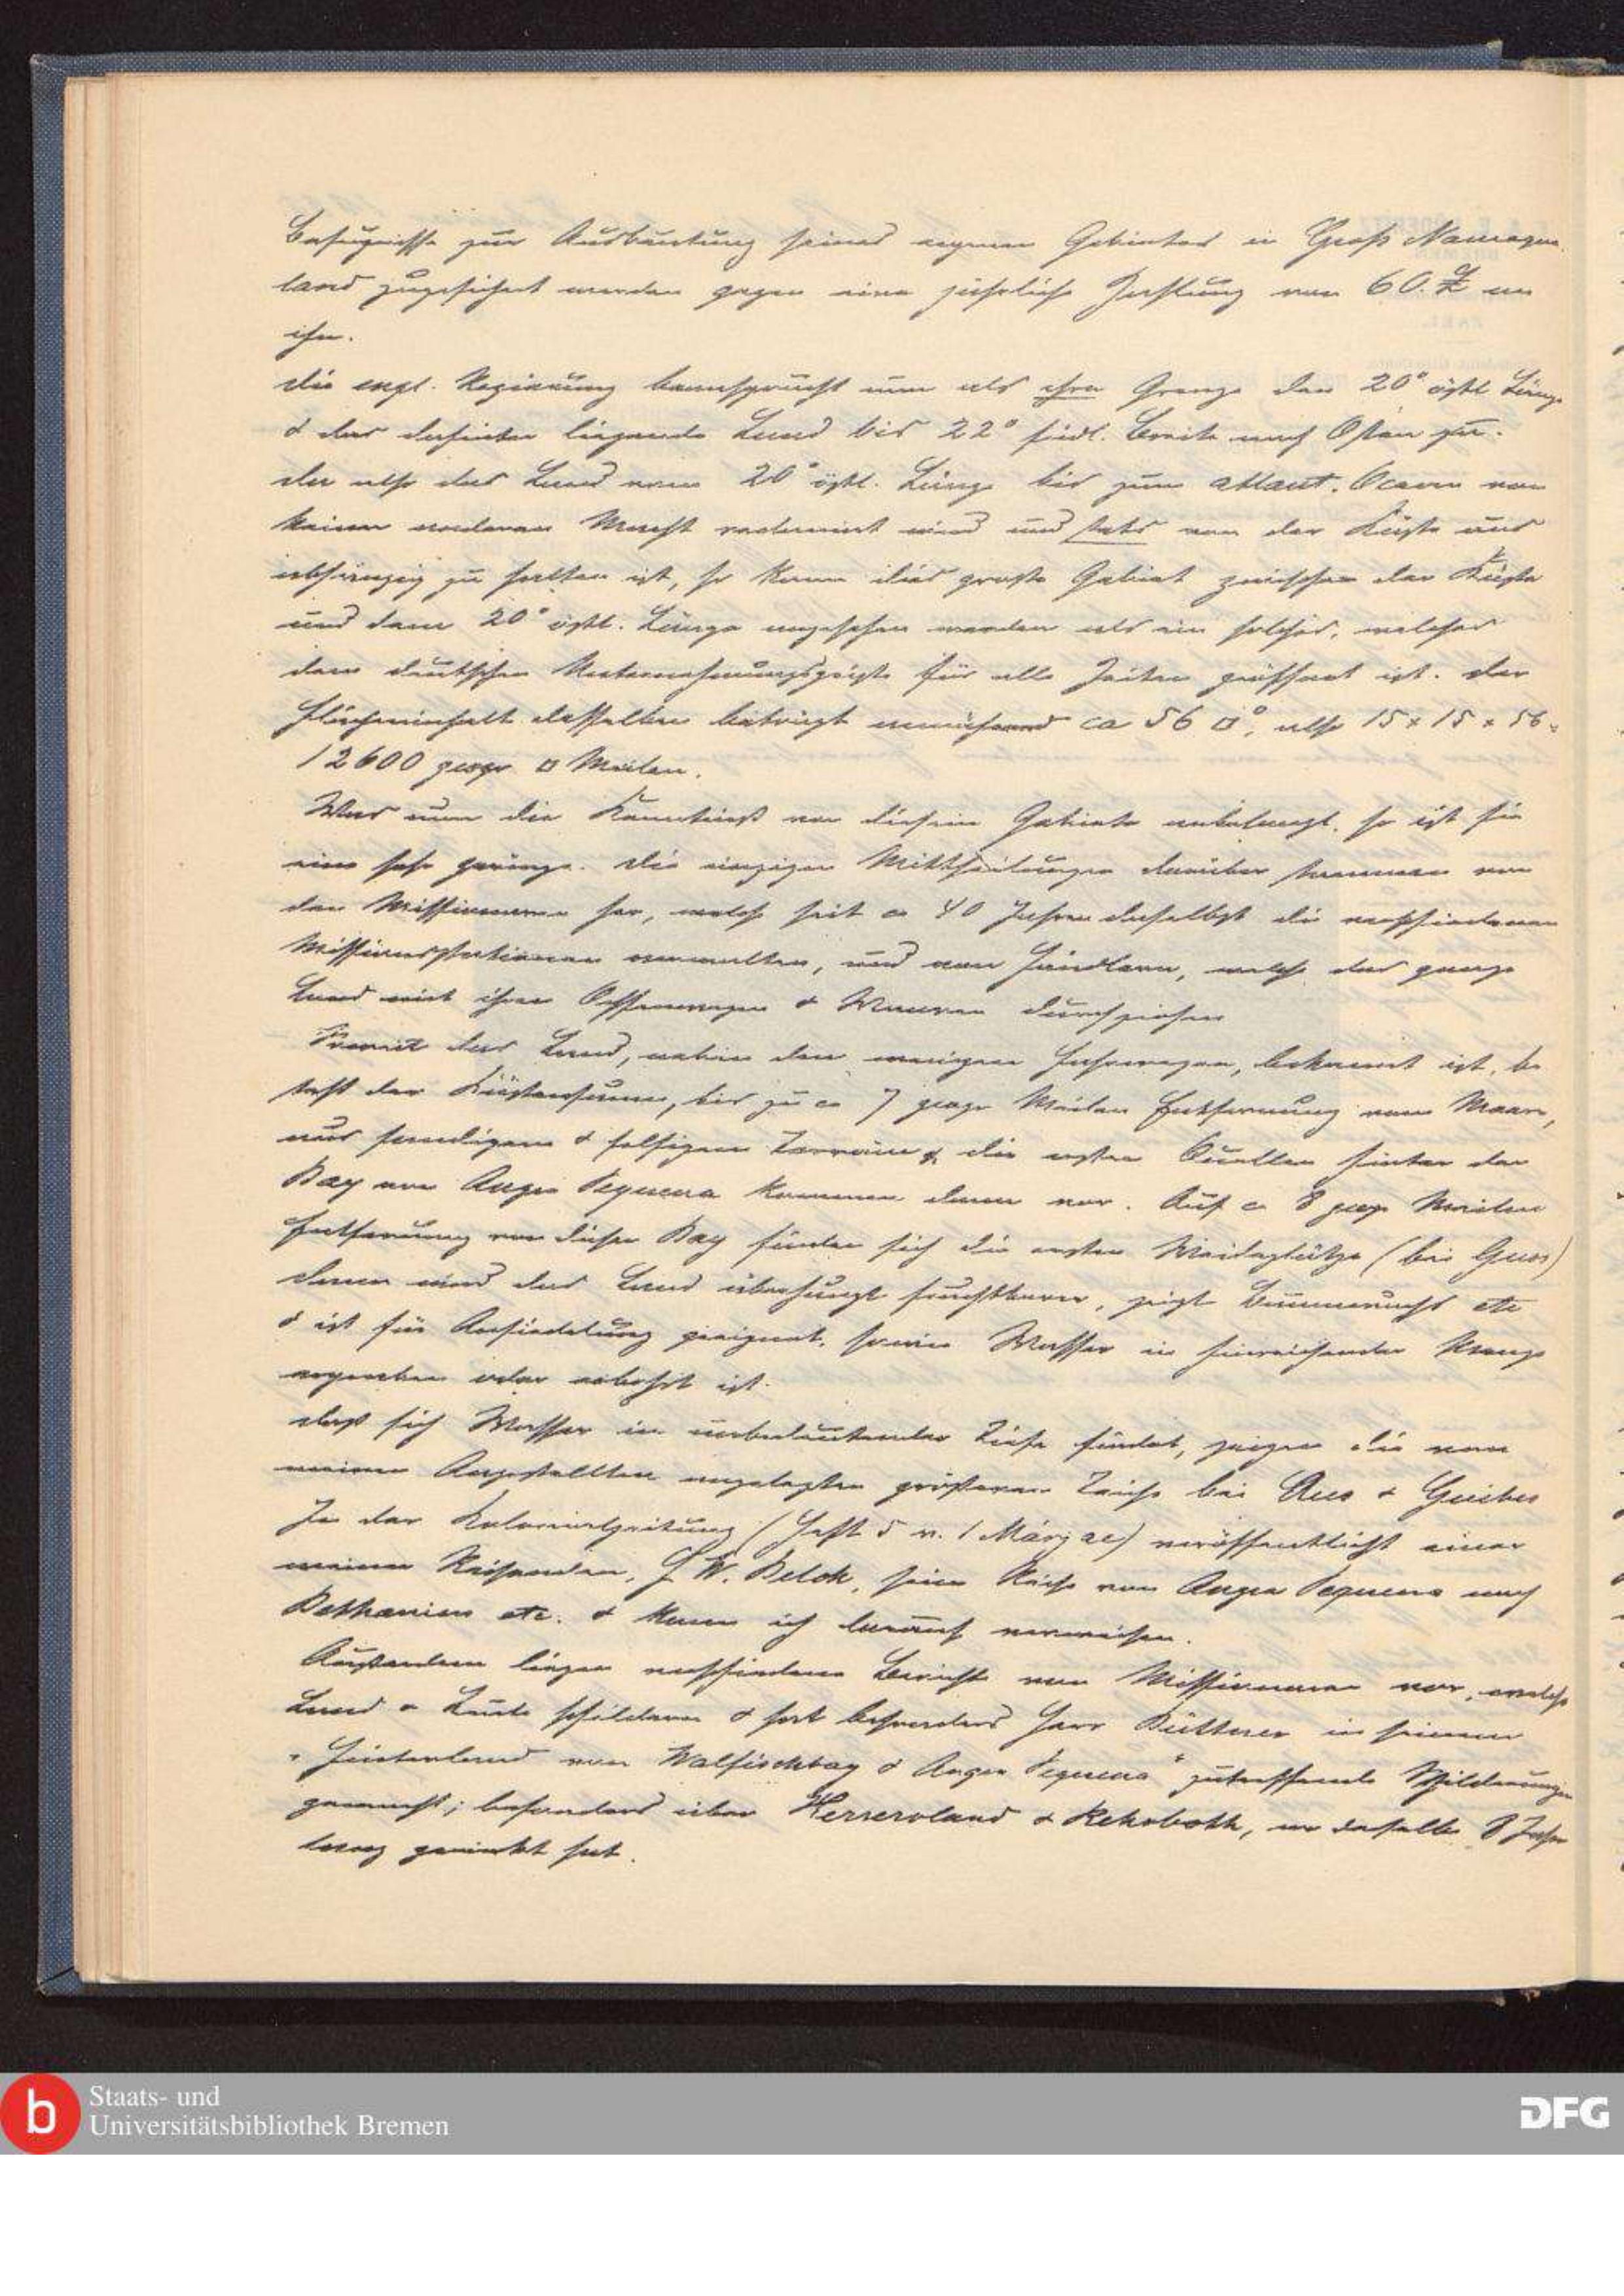 Befugnisse zur Ausbeutung seines eigenen Gebietes in Groß Namaqua
land zugesichert werden gegen eine jährliche Zahlung von 60. £ an
ihn.
Die engl. Regierung beansprucht nun als ihre Grenze den 20° östl Länge
& das dahinter liegende Land bis 22° südl. Breite nach Osten zu.
Da also das Land vom 20° östl. Länge bis zum atlant. Ocean von
keiner anderen Macht reclamirt wird und stets von der Küste aus
abhängig zu halten ist, so kann dies große Gebiet zwischen der Küste
und dem 20° östl. Länge angesehen werden als ein solches, welches
dem deutschen Unternehmungsgeiste für alle Zeiten geöffnet ist. Der
Flächeninhalt desselben beträgt annähernd ca 56 □°, also 15 x 15 x 56.
12600 geogr □ Meilen.
Was nun die Kenntniß von diesem Gebiete anbelangt, so ist sie
eine sehr geringe. Die einzigen Mittheilungen darüber stammen von
den Missionaren her, welche seit ca 40 Jahren daselbst die verschiedenen
Missionsstationen verwalten, und von Händlern, welche das ganze
Land mit ihren Ochsenwagen & Waaren durchziehen
Soweit das Land, neben den wenigen Fahrwegen, bekannt ist, be
steht der Küstensaum, bis zu ca 7 geogr Meilen Entfernung vom Meere,
aus sandigem & felsigem Terrain & die ersten Quellen hinter der
Bay von Angra Pequena kommen dann vor. Auf ca 8 geogr Meilen
Entfernung von dieser Bay finden sich die ersten Weideplätze (bei Guos)
dann wird das Land überhaupt fruchtbarer, zeigt Baumwuchs etc
& ist für Ansiedelung geeignet, sowie Wasser in hinreichender Menge
vorhanden oder erbohrt ist.
Daß sich Wasser in unbedeutender Tiefe findet, zeigen die von
meinen Angestellten angelegten größeren Teiche bei Aus & Guibes
In der Kolonialzeitung (Heft 5 v. 1 März ac) veröffentlicht einer
meiner Reisenden, W. Belck, seine Reise von Angra Pequena nach
Bethanien etc. & kann ich darauf verweisen.
Außerdem liegen verschiedene Berichte von Missionaren vor, welche
Land & Leute schildern & hat besonders Herr Büttner in seinem
"Hinterland von Walfischbay & Angra Pequena" zutreffende Schilderungen
gemacht; besonders über Herreroland & Rehoboth, wo derselbe 8 Jahre
lang gewirkt hat.
Staats- und
Universitätsbibliothek Bremen
DFG